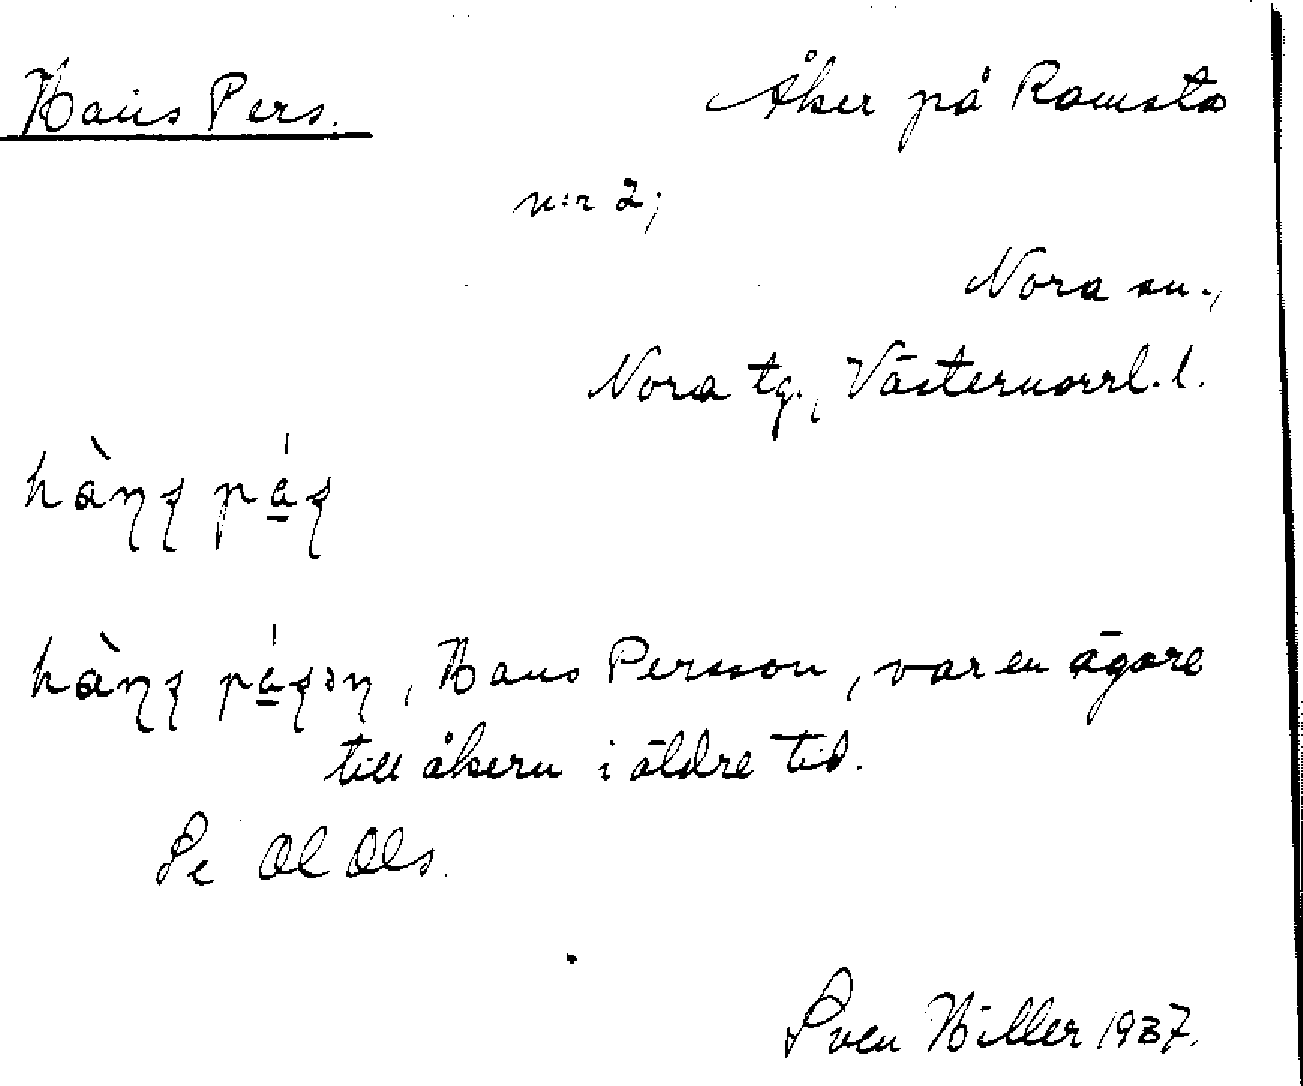 Hans Pers.
Åker på Ramsta
n:r 2;
Nora sn.,
Nora tg., Västernorrl. l.
, Hans Persson, var en ägare
till åkern i äldre tid.
Se Ol Ols.
Sven Hiller 1937.